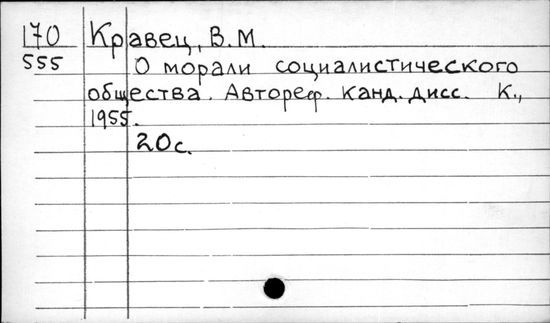 170 Кравец, В.М.
555 О морали социалистического
общества. Автореф. канд. дисс. К.,
1955.
20с.